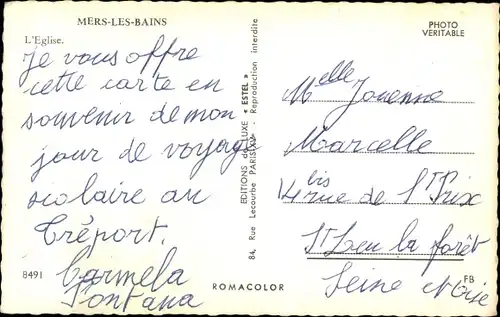 MERS-LES-BAINS
L'Eglise.
Je vous offre
cette carte en
souvenir de mon
jour de voyage
scolaire au
Tréport.
Carmela
Fontana
8491
EDITIONS de LUXE « ESTEL »
84, Rue Lecourbe PARIS-XV - Reproduction interdite
ROMACOLOR
PHOTO
VERITABLE
Melle Jouenne
Marcelle
14 bis rue de St Prix
St Leu la forêt
FB
Seine et Oise